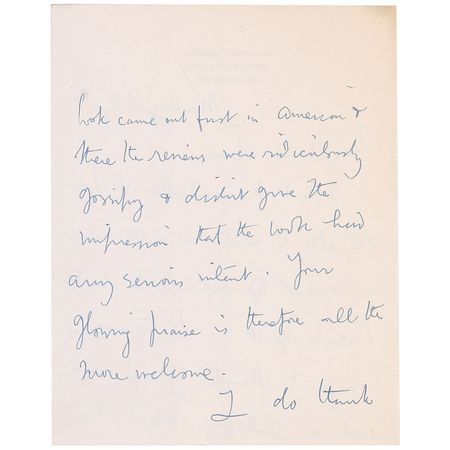 book came out first in America &
there the reviews were ridiculously
gossipy & didn't give the
impression that the book had
any serious intent. Your
glowing praise is therefore all the
more welcome.
I do thank